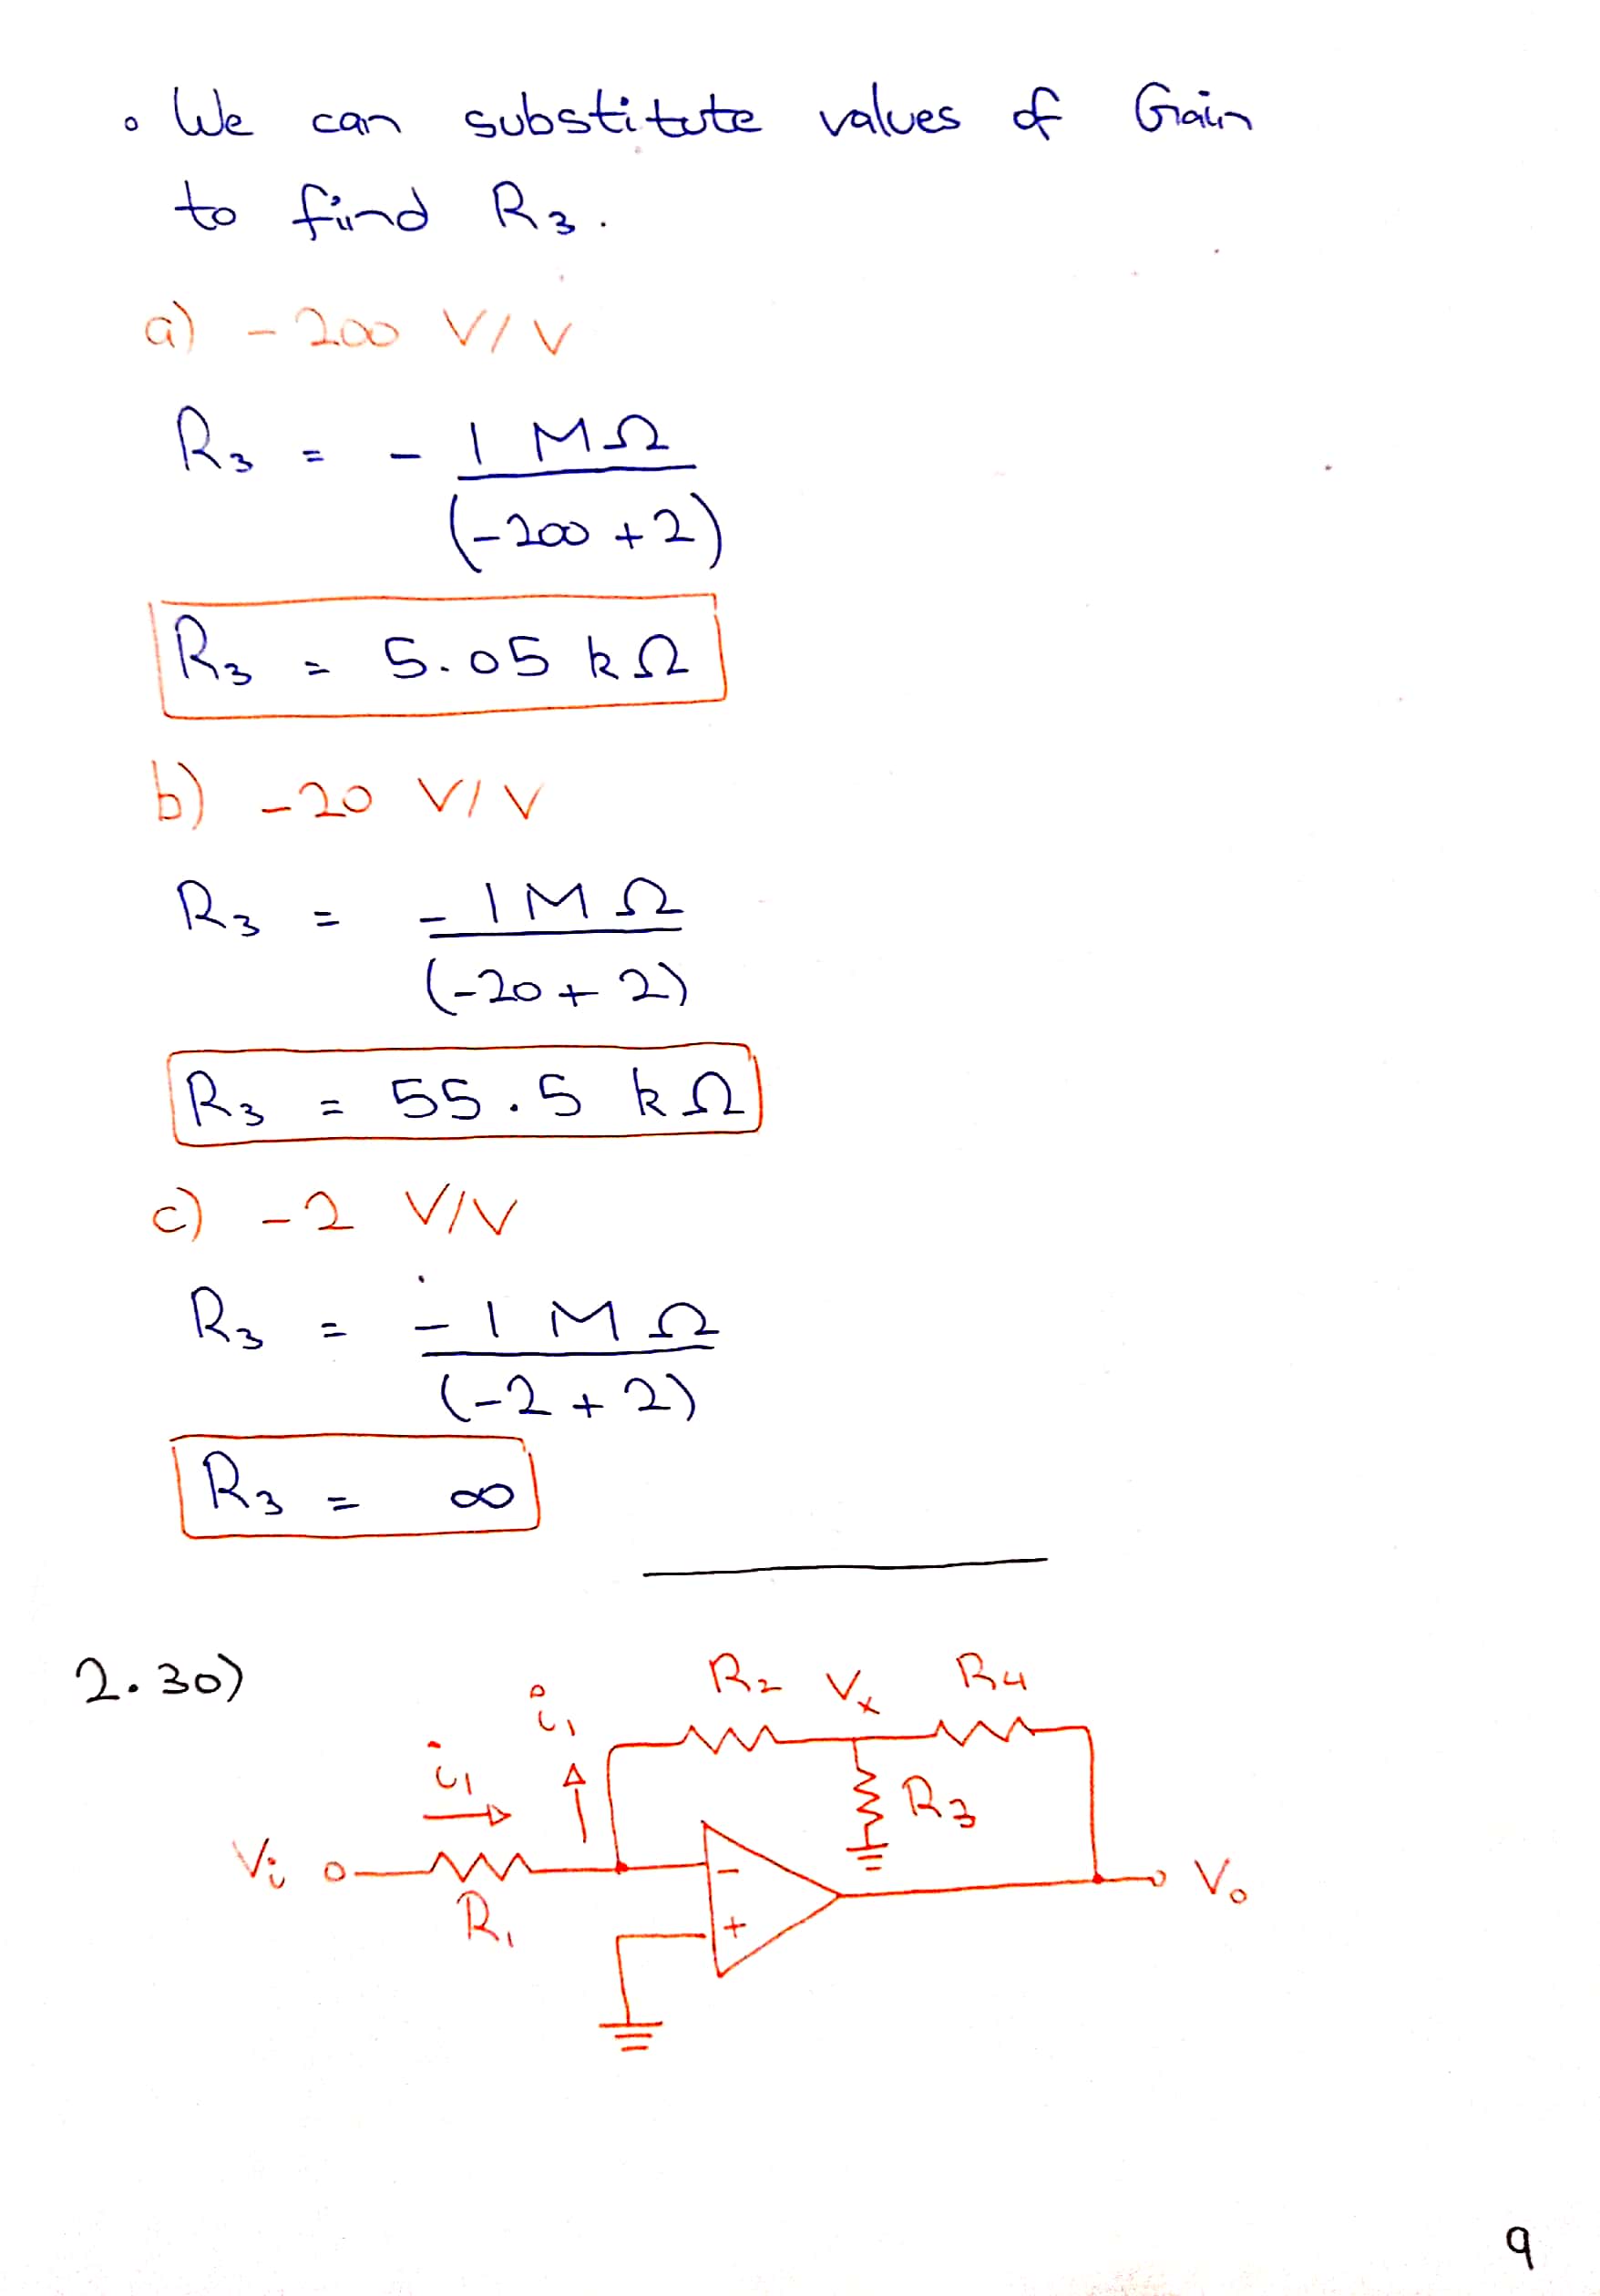 ∘ We can substitute values of Gain
to find R₃.
a) -200 V/V
R₃ = - 1 MΩ
(-200 + 2)
R₃ = 5.05 kΩ
b) -20 V/V
R₃ = - 1 MΩ
(-20 + 2)
R₃ = 55.5 kΩ
c) -2 V/V
R₃ = - 1 MΩ
(-2 + 2)
R₃ = ∞
2.30)
R₂ Vₓ R₄
i₁
i₁
R₃
Vᵢ
-
Vₒ
R₁
+
9